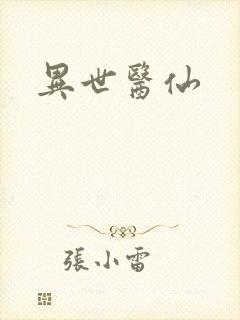 異世醫仙
張小雷